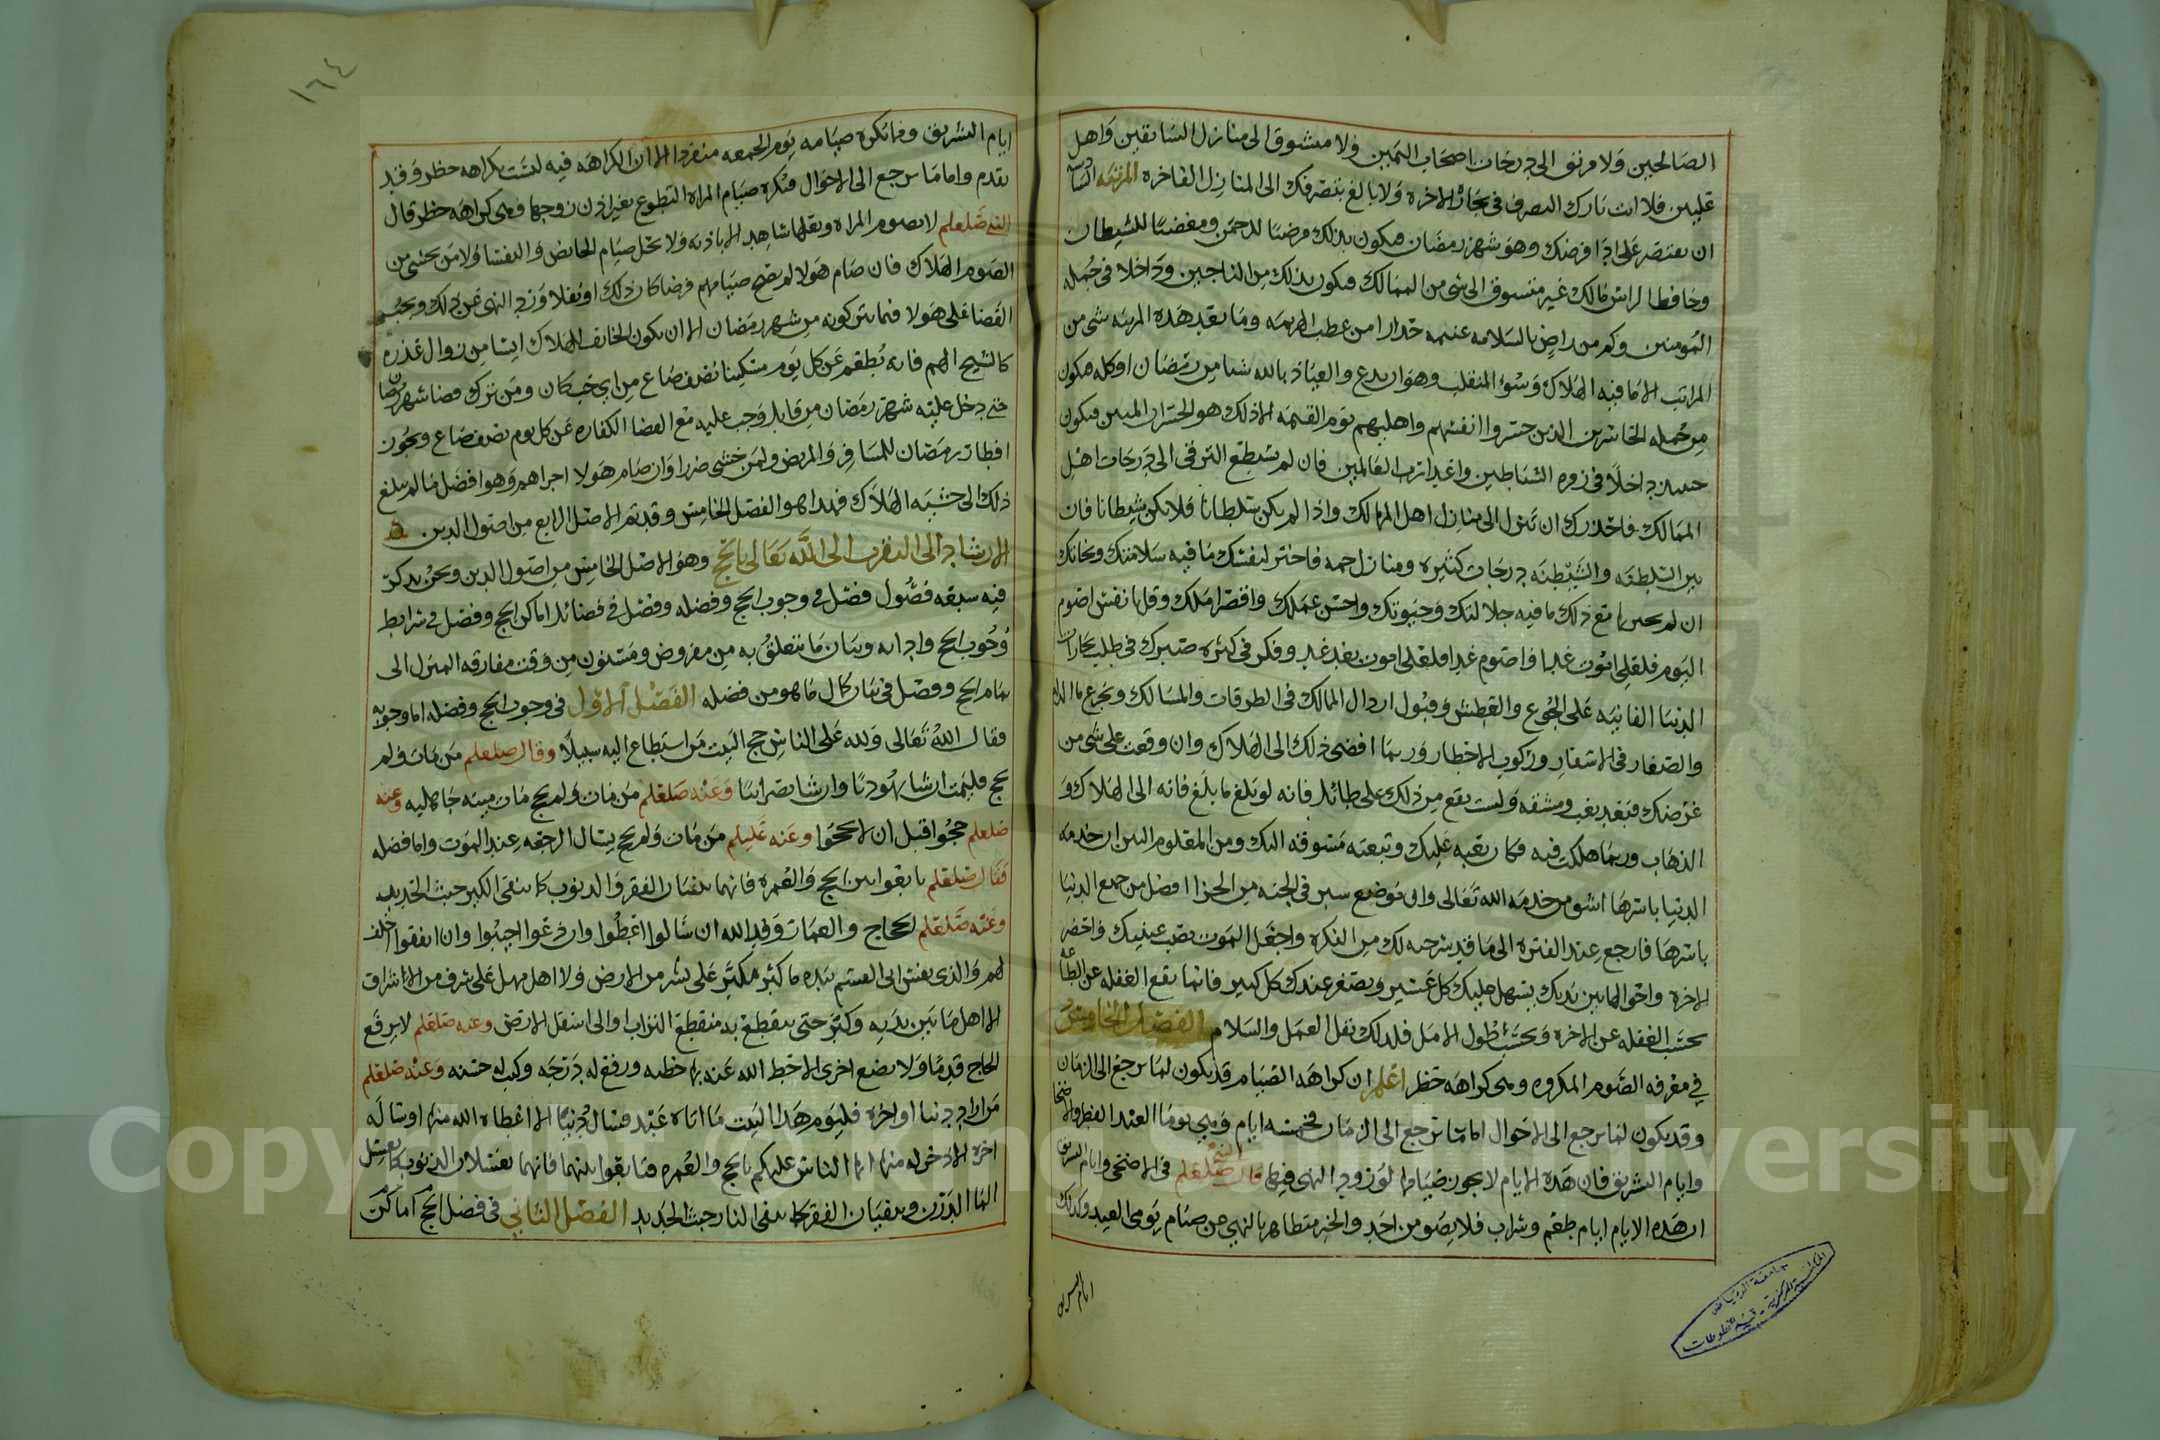 الصالحين ولا مرتق الى درجات اصحاب اليمين ولا مشوق الى منازل السابقين واهل
عليين فلا انت تارك التصرف في بحار الاخرة ولا بالغ بتصرفك الى المنازل الفاخره المرتبه
ان تقتصر على اداء فرضك وهو شهر رمضان فيكون بذلك مرضيا للرحمن ومغضبا للشيطان
وحافظا لراس مالك غير متسوق الى شي من الممالك فيكون بذلك من الناجين وداخلا في جمله
المومنين وكم من راض بالسلامه غنيمه حذارا من عطب الهزيمه وما بعد هذه المرتبه شي من
المراتب الا ما فيه الهلاك وسوء المنقلب وهو ان تدع والعياذ بالله شيا من رمضان او كله فيكون
من جمله الخاسرين الذين خسروا انفسهم واهليهم يوم القيمه الا ذلك هو الخسران المبين فيكون
حينئذ داخلا في زمره الشياطين واعدا رب العالمين فان لم تستطع الترقي الى درجات اهل
الممالك فاحذرك ان تنزل الى منازل اهل المهالك واذا لم يكن سلطانا فلا يكن شيطانا فان
بين السلطنه والشيطنه درجات كثيره ومنازل جمه فاختر لنفسك ما فيه سلامتك ونجاتك
ان لم مع ذلك ما فيه جلالتك وحيوتك واحسن عملك واقصر املك وقل يا نفس اصوم
اليوم فلعلي اموت غدا واصوم غدا فلعلي اموت بعد غد وفكر في كثره صبرك في طلب تجارات
الدنيا الفانيه على الجوع والعطش وقبول ارذال الممالك في الطرقات والمسالك وتجرع
والصغار في الاسفار وركوب الاخطار وربما افضى ذلك الى الهلاك وان وقعت على شي من
غرضك فبعد تعب ومشقه ولست تقع من ذلك على طائل فانه لو بلغ ما بلغ فانه الى الهلاك و
الذهاب وربما هلكت فيه فكان تعبه عليك وتبعته مسوقه اليك ومن المعلوم البين ان خدمه
الدنيا باسرها اشق من خدمه الله تعالى وان موضع شبر في الجنه من الجزا افضل من جميع الدنيا
باسرها فارجع عند الفتره الى ما قد شرحته لك من الفكره واجعل الموت نصب عينيك واحضر
الاخره واحوالها بين يديك يسهل عليك كل عسير ويصغر عندك كل كبير فانما تقع الغفله عن الطاعه
بحسب الغفله عن الاخره وبحسب طول الامل فلذلك نقل العمل والسلام الفصل الخامس
في معرفه الصوم المكروه وهي كراهه حظر اعلم ان كراهه الصيام قد يكون لما يرجع الى الزمان
وقد يكون لما يرجع الى الاحوال اما ما يرجع الى الزمان فخمسه ايام وهي يوما العيد الفطر والاضحا
وايام التشريق فان هذه الايام لا يجوز صيامها لورود النهي فيها قال النبي صلعم في الاضحى وايام التشريق
ان هذه الايام ايام طعم وشراب فلا يصومن احد والخبر متظاهر بالنهي عن صيام يومي العيد وكذلك
ايام التشريق
١٦٤
ايام التشريق وما تكره صيامه يوم الجمعه منفردا الا ان الكراهه فيه ليست بكراهه حظر وقد
تقدم واما ما يرجع الى الاحوال فتكره صيام المراه التطوع بغير اذن زوجها فهي كراهه حظر قال
النبي صلعم لا تصوم المراه وبعلها شاهد الا باذنه ولا تحل صيام الحايض والنفسا ولا من يخشى من
الصوم الهلاك فان صام هولا لم يصح صيامهم فرضا كان ذلك او نفلا ورد النهي عن ذلك ويجب
القضا على هولا فما يتركونه من شهر رمضان الا ان يكون الخائف الهلاك ايسا من زوال عذره
كالشيخ الهم فانه يطعم عن كل يوم مسكينا نصف صاع من اي حب كان ومن ترك قضا شهر رمضان
حتى دخل عليه شهر رمضان من قابل وجب عليه مع القضا الكفاره عن كل يوم نصف صاع ويجوز
افطار رمضان للمسافر والمريض ولمن خشي ضررا وان صام هولا اجزاهم وهو افضل ما لم يبلغ
ذلك الى خشيه الهلاك فهذا هو الفصل الخامس وقد تم الاصل الرابع من اصول الدين
الارشاد الى التقرب الى الله تعالى بالحج وهو الاصل الخامس من اصول الدين ونحن نذكر
فيه سبعه فصول فصل في وجوب الحج وفضله وفصل في فضائل اماكن الحج وفصل في شرايط
وجوب الحج وادابه وبيان ما يتعلق به من مفروض ومسنون من وقت مفارقه المنزل الى
تمام الحج وفصل في بيان كمال ما هو من فضله الفصل الاول في وجوب الحج وفضله اما وجوبه
فقال الله تعالى ولله على الناس حج البيت من استطاع اليه سبيلا وقال صلعم من مات ولم
يحج فليمت ان شا يهوديا وان شا نصرانيا وعنه صلعم من مات ولم يحج مات ميته جاهليه وعنه
صلعم حجوا قبل ان لا تحجوا وعنه عليلم من مات ولم يحج يسال الرجعه عند الموت واما فضله
فقال صلعم تابعوا بين الحج والعمره فانهما ينفيان الفقر والذنوب كما ينفي الكير خبث الحديد
وعنه صلعم الحجاج والعمار وفد الله ان سالوا اعطوا وان دعوا اجيبوا وان انفقوا اخلف
لهم والذي نفس ابي القسم بيده ما كبر مكبر على نشز من الارض ولا اهل مهل على شرف من الاشراف
الا اهل ما بين يديه وكبر حتى ينقطع به منقطع التراب والى اسفل الارض وعنه صلعم لا يرفع
الحاج قدما ولا يضع اخرى الا حط الله عنه بها خطيه ورفع له درجه وكتب له حسنه وعنه صلعم
من اراد دنيا او اخره فليوم هذا البيت ما اتاه عبد فسال دنيا الا اعطاه الله منها او ساله
اخره الا ذخر له منها ايها الناس عليكم بالحج والعمره فتابعوا بينهما فانهما يغسلان الذنوب كما يغسل
الما الدرن وينفيان الفقر كما ينفي النار خبث الحديد الفصل الثاني في فضل الحج اماكن
جامعة الرياض
المكتبة المركزية - قسم المخطوطات
Copyright © King Saud University